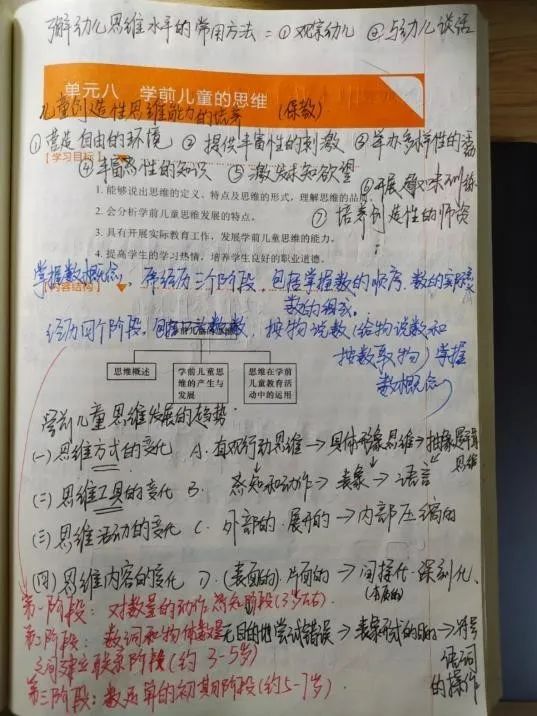 了解幼儿思维水平的常用方法：①观察幼儿 ②与幼儿谈话
单元八 学前儿童的思维
儿童创造性思维能力的培养 (保教)
①营造自由的环境 ②提供丰富性的刺激 ③举办多样性的
【学习目标】
④丰富性的知识 ⑤激发求知欲望
⑥开展 训练
1. 能够说出思维的定义、特点及思维的形式，理解思维的品质。
⑦培养创造性的师资
2. 会分析学前儿童思维发展的特点。
3. 具有开展实际教育工作，发展学前儿童思维的能力。
4. 提高学生的学习热情，培养学生良好的职业道德。
掌握数概念，需经历三个阶段，包括掌握数的顺序、数的实际意义
【内容结构】
数的组成
经历四个阶段，包括口头数数，按物说数(给物说数和
按数取物) 掌握
数概念
思维概述
学前儿童思维的产生与发展
思维在学前儿童教育活动中的运用
学前儿童思维发展的趋势
(一)思维方式的变化 A. 直观行动思维→具体形象思维→抽象逻辑思维
(二)思维工具的变化 B. 感知和动作→表象→语言
(三)思维活动的变化 C. 外部的、展开的→内部压缩的
(四)思维内容的变化 D. (表面的)片面的→间接化、深刻化
(本质的)
第一阶段：对数量的动作感知阶段(3岁左右)
第二阶段：数词和物体数量 无目的地尝试错误→表象形式的 →符号
之间建立联系阶段(约3-5岁)
语词
的操作
第三阶段：数运算的初期阶段(约5-7岁)